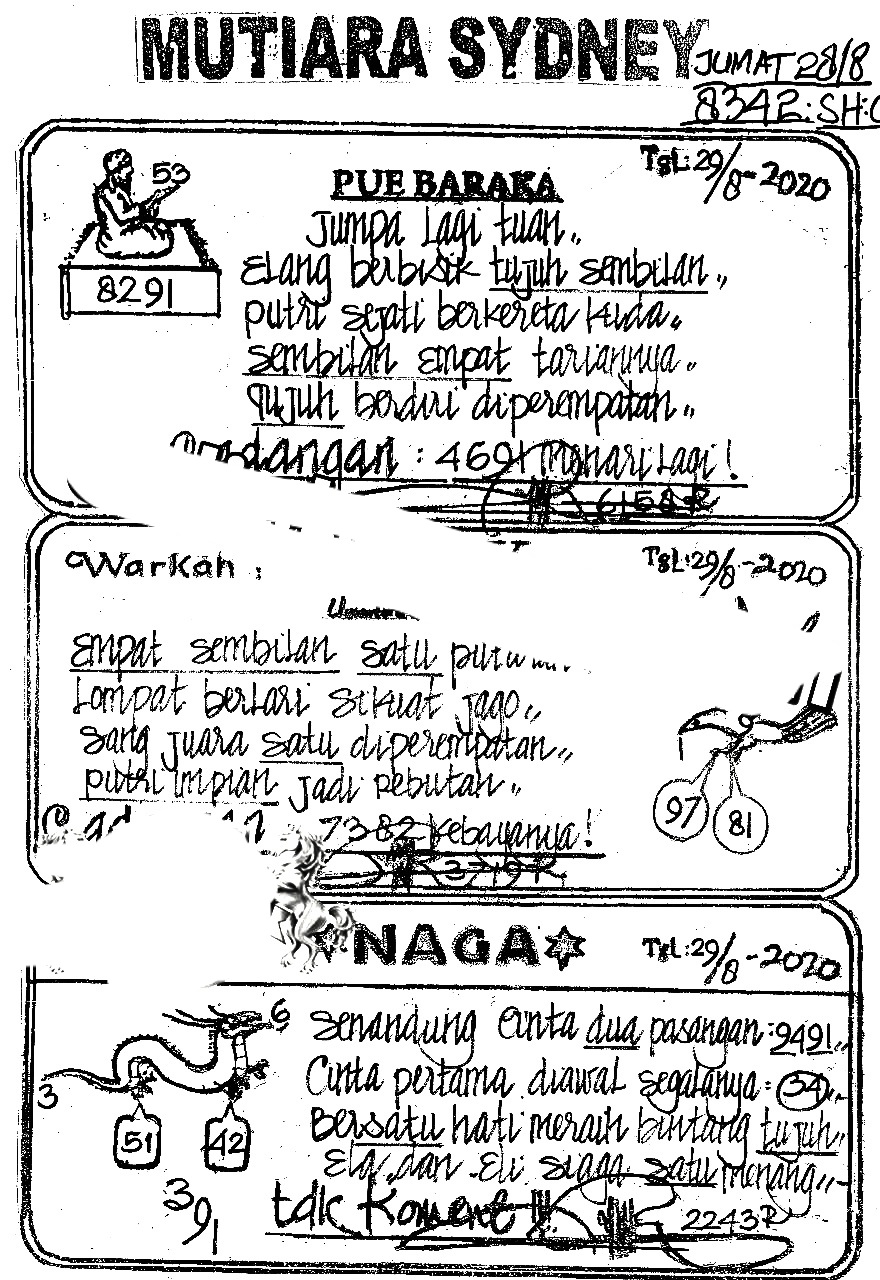 MUTIARA SYDNEY
JUMAT 28/8
8342: SH:
53
8291
Tgl: 29/8-2020
PUE BARAKA
Jumpa lagi tuan,,
Elang berbisik tujuh sembilan,,
putri sejati berkereta kuda,,
sembilan empat tariannya,,
Tujuh berdiri diperempatan,,
: 4691 Menari Lagi!
6158 R
Warkah :
Tgl: 29/8-2020
Empat sembilan satu
Lompat berlari sikuat jago,,
Sang juara satu diperempatan,,
putri impian jadi rebutan,,
7382 Kebayanya!
3719 R
97
81
NAGA
Tgl: 29/8-2020
6
3
51
42
391
Senandung Cinta dua pasangan: 9491,,
Cinta pertama diawal segalanya: 34,,
Bersatu hati meraih bintang tujuh,,
Ela dan Eli siaga satu menang,,
tdk Koment !!!
2243 R